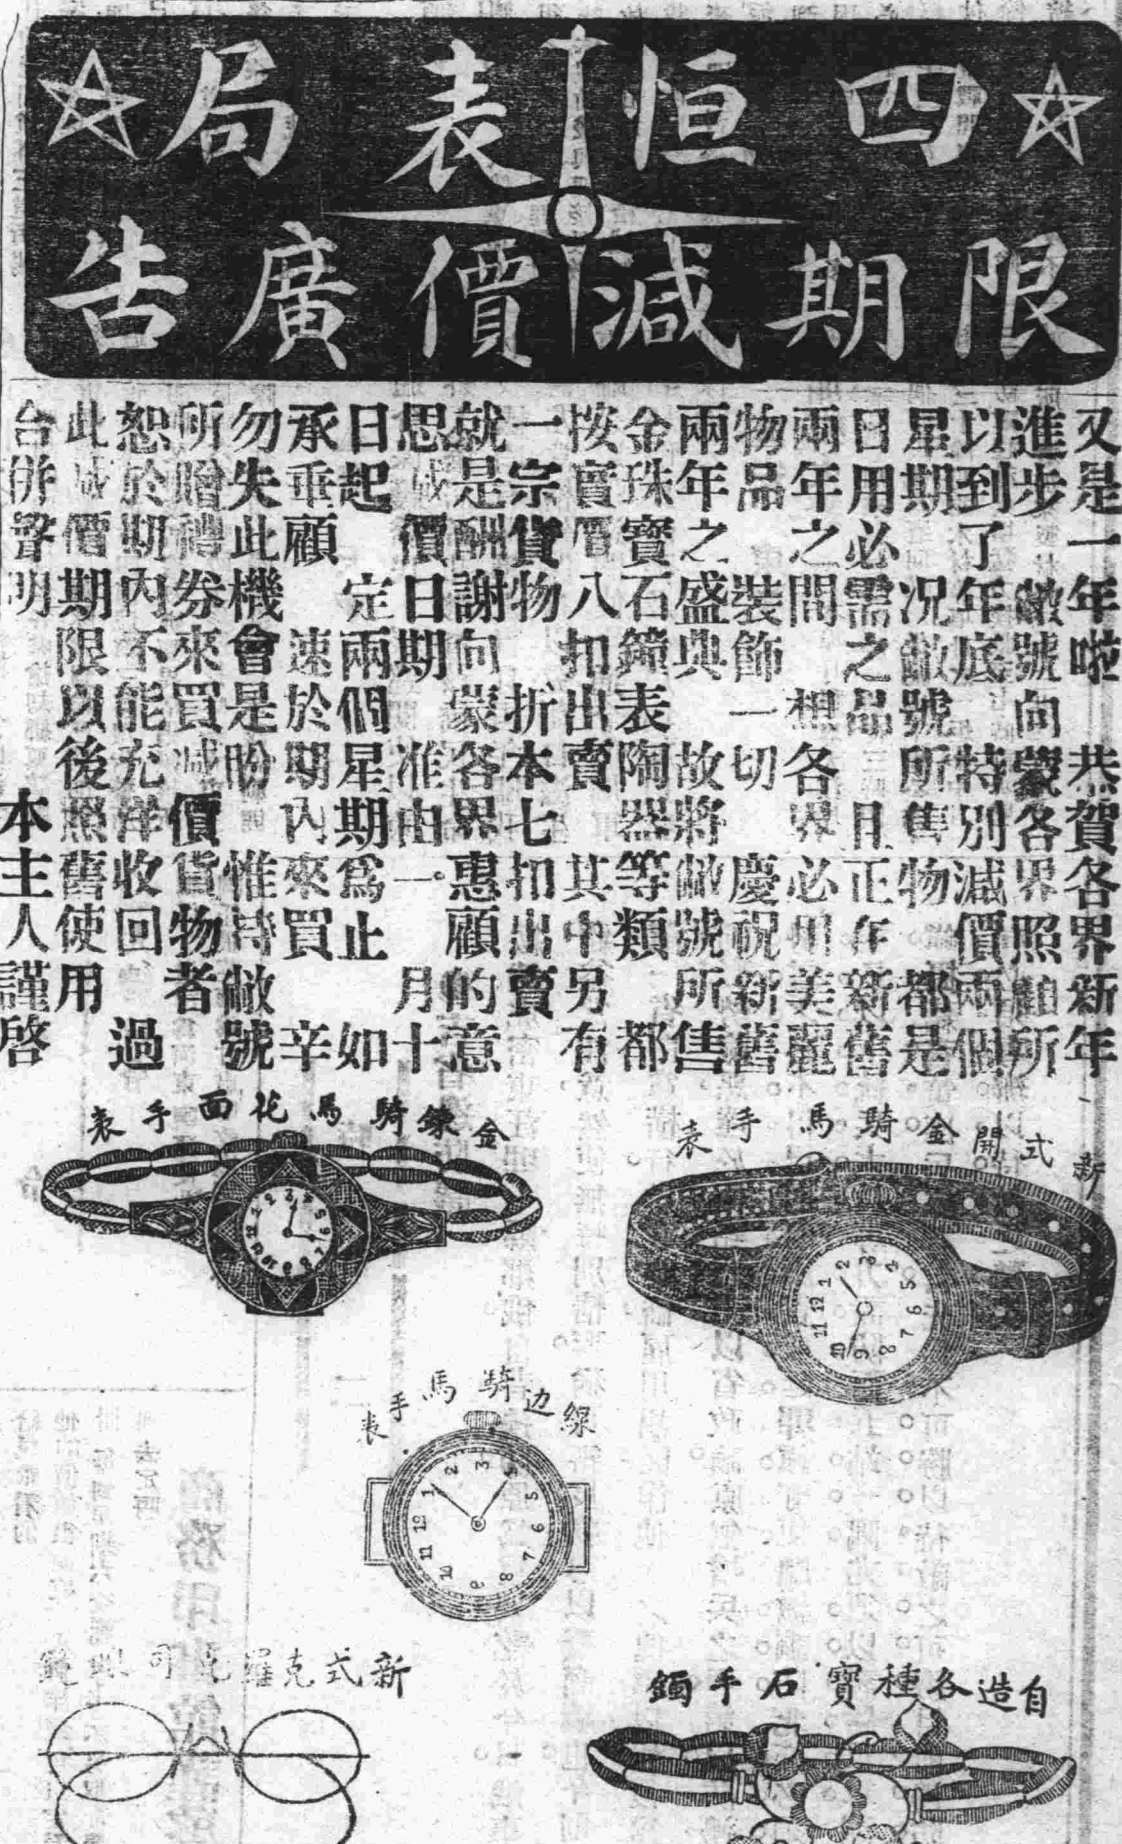 四恒表局
限期減價廣告
又是一年啦 恭賀各界新年
進步 敝號向蒙各界照顧所
以到了年底 特別減價兩個
星期 况敝號所售物 都是
日用必需之品 且正在新舊
兩年之間 想各界必用美麗
物品 裝飾一切 慶祝新舊
兩年之盛典 故將敝號所售
金珠寶石鐘表陶器等類 都
按實價八扣出賣 其中另有
一宗貨物 折本七扣出賣
就是酬謝向蒙各界惠顧的意
思 減價日期 准由一月十
日起 定兩個星期爲止 如
承垂顧 速於期內來買 幸
勿失此機會是盼 惟持敝號
所贈禮券來買減價貨物者
恕於期內不能充洋收回 過
此減價期限以後照舊使用
台併聲明 本主人謹啓
新式開金騎馬手表
金鍊騎馬花面手表
線边騎馬手表
自造各種寶石手鐲
新式克羅克司鏡